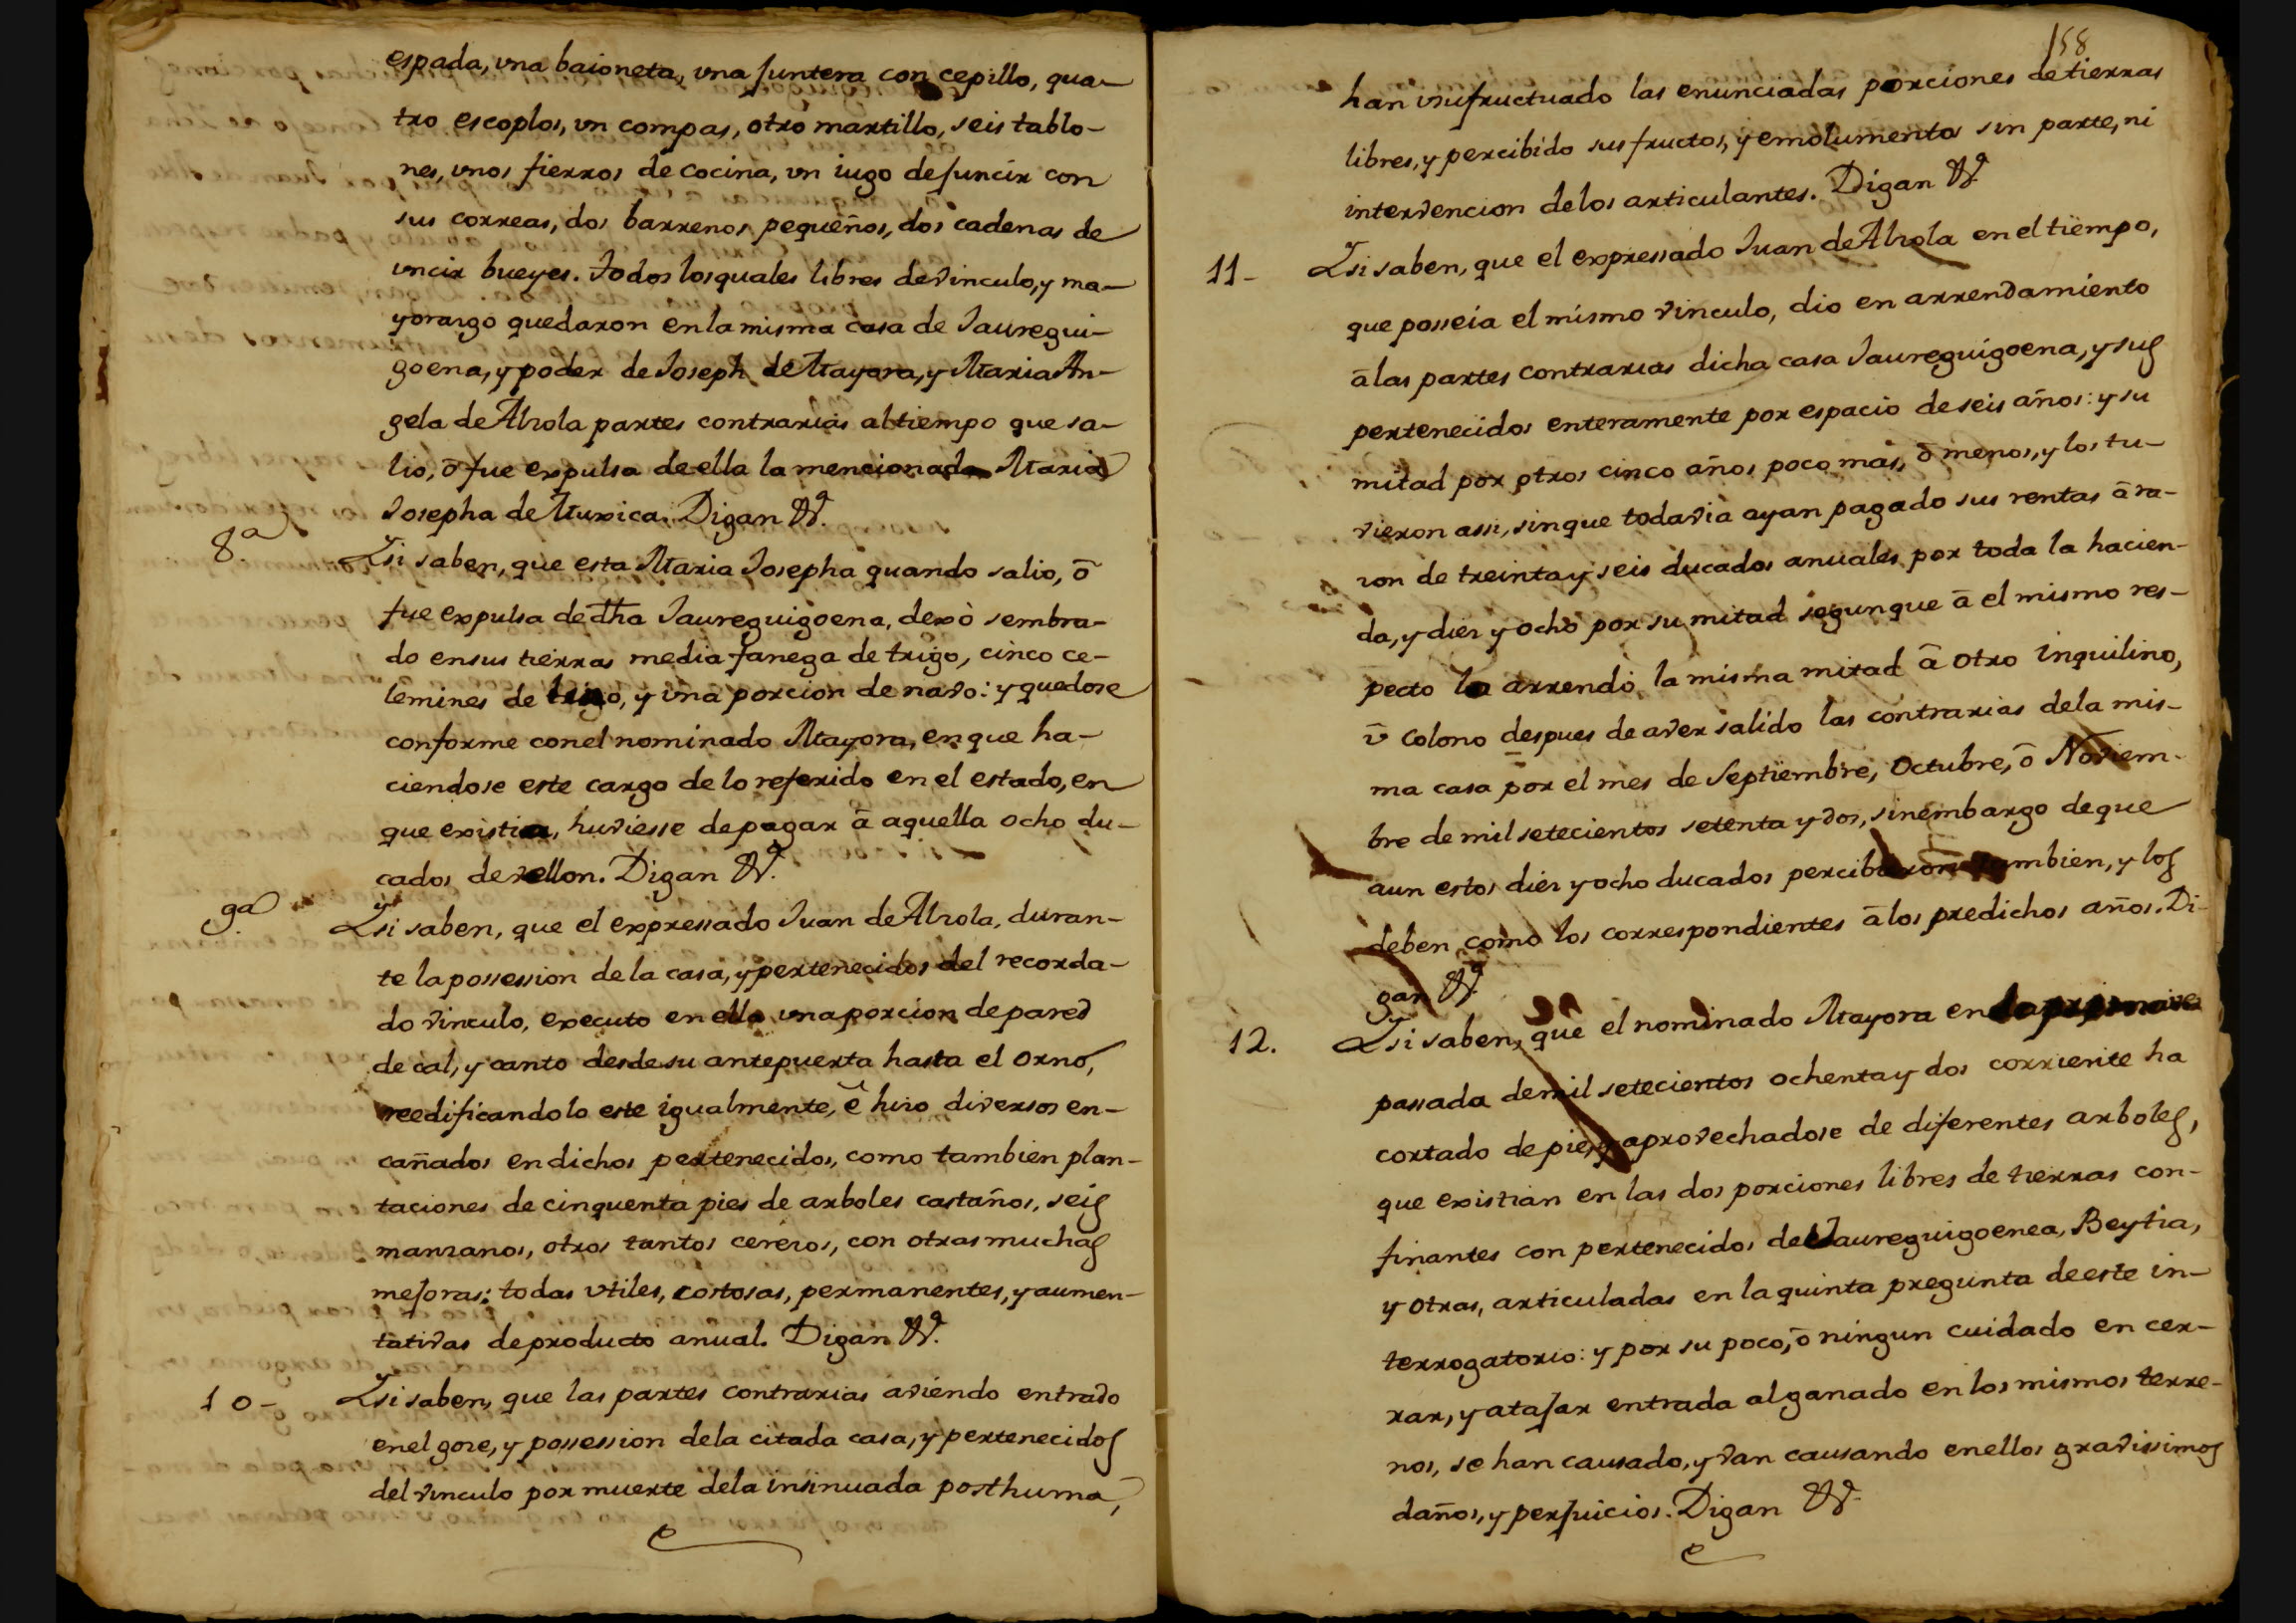 espada, vna baioneta, vna juntera con cepillo, qua-
tro escoplos, vn compas, otro martillo, seis tablo-
nes, vnos fierros de cocina, vn iugo de juncir con
sus correas, dos barrenos pequeños, dos cadenas de
vncir bueyes. Todos los quales libres de vinculo, y ma-
yorazgo quedaron en la misma casa de Jauregui-
goena, y poder de Joseph de Mayora, y Maria An-
gela de Alzola partes contrarias al tiempo que sa-
lio, ō fue expulsa de ella la mencionada Maria
Josepha de Muxica. Digan &ª.
8.ª Ysi saben, que esta Maria Josepha quando salio, ō
fue expulsa de dha Jaureguigoena, dexò sembra-
do en sus tierras media fanega de trigo, cinco ce-
lemines de , y vna porcion de navo: y quedose
conforme con el nominado Mayora, en que ha-
ciendose este cargo de lo referido en el estado, en
que existia, huviesse de pagar ā aquella ocho du-
cados de vellon. Digan &ª.
9.ª Ysi saben, que el expressado Juan de Alzola, duran-
te la possession de la casa, y pertenecidos del recorda-
do vinculo, executo en ella vna porcion de pared
de cal, y canto desde su antepuerta hasta el orno,
reedificandolo este igualmente, ē hizo diversos en-
cañados en dichos pertenecidos, como tambien plan-
taciones de cinquenta pies de arboles castaños, seis
manzanos, otros tantos cerezos, con otras muchas
mejoras; todas vtiles, costosas, permanentes, y aumen-
tativas de producto anual. Digan &ª.
10- Ysi saben, que las partes contrarias aviendo entrado
en el goze, y possession de la citada casa, y pertenecidos
del vinculo por muerte de la insinuada posthuma,
158
han vsufructuado las enunciadas porciones de tierras
libres, y percibido sus fructos, y emolumentos sin parte, ni
intervencion de los articulantes. Digan &ª
11- Ysi saben, que el expressado Juan de Alzola en el tiempo,
que posseia el mismo vinculo, dio en arrendamiento
ā las partes contrarias dicha casa Jaureguigoena, y sus
pertenecidos enteramente por espacio de seis años: y su
mitad por otros cinco años poco mas, ō menos, y los tu-
vieron assi, sin que todavia ayan pagado sus rentas ā ra-
zon de treinta y seis ducados anuales por toda la hacien-
da, y diez y ocho por su mitad segun que ā el mismo res-
pecto la arrendò la misma mitad ā otro inquilino,
v̄ colono despues de aver salido las contrarias de la mis-
ma casa por el mes de Septiembre, Octubre, ō Noviem-
bre de mil setecientos setenta y dos, sin embargo de que
aun estos diez y ocho ducados percibieron tambien, y los
deben como los correspondientes ā los predichos años. Di-
gan &ª
12. Ysi saben, que el nominado Mayora en la primave
passada de mil setecientos ochenta y dos corriente ha
cortado de pie, y aprovechadose de diferentes arboles,
que existian en las dos porciones libres de tierras con-
finantes con pertenecidos de Jaureguigoenea, Beytia,
y otras, articuladas en la quinta pregunta de este in-
terrogatorio: y por su poco, ō ningun cuidado en cer-
rar, y atajar entrada al ganado en los mismos terre-
nos, se han causado, y van causando en ellos gravissimos
daños, y perjuicios. Digan &ª